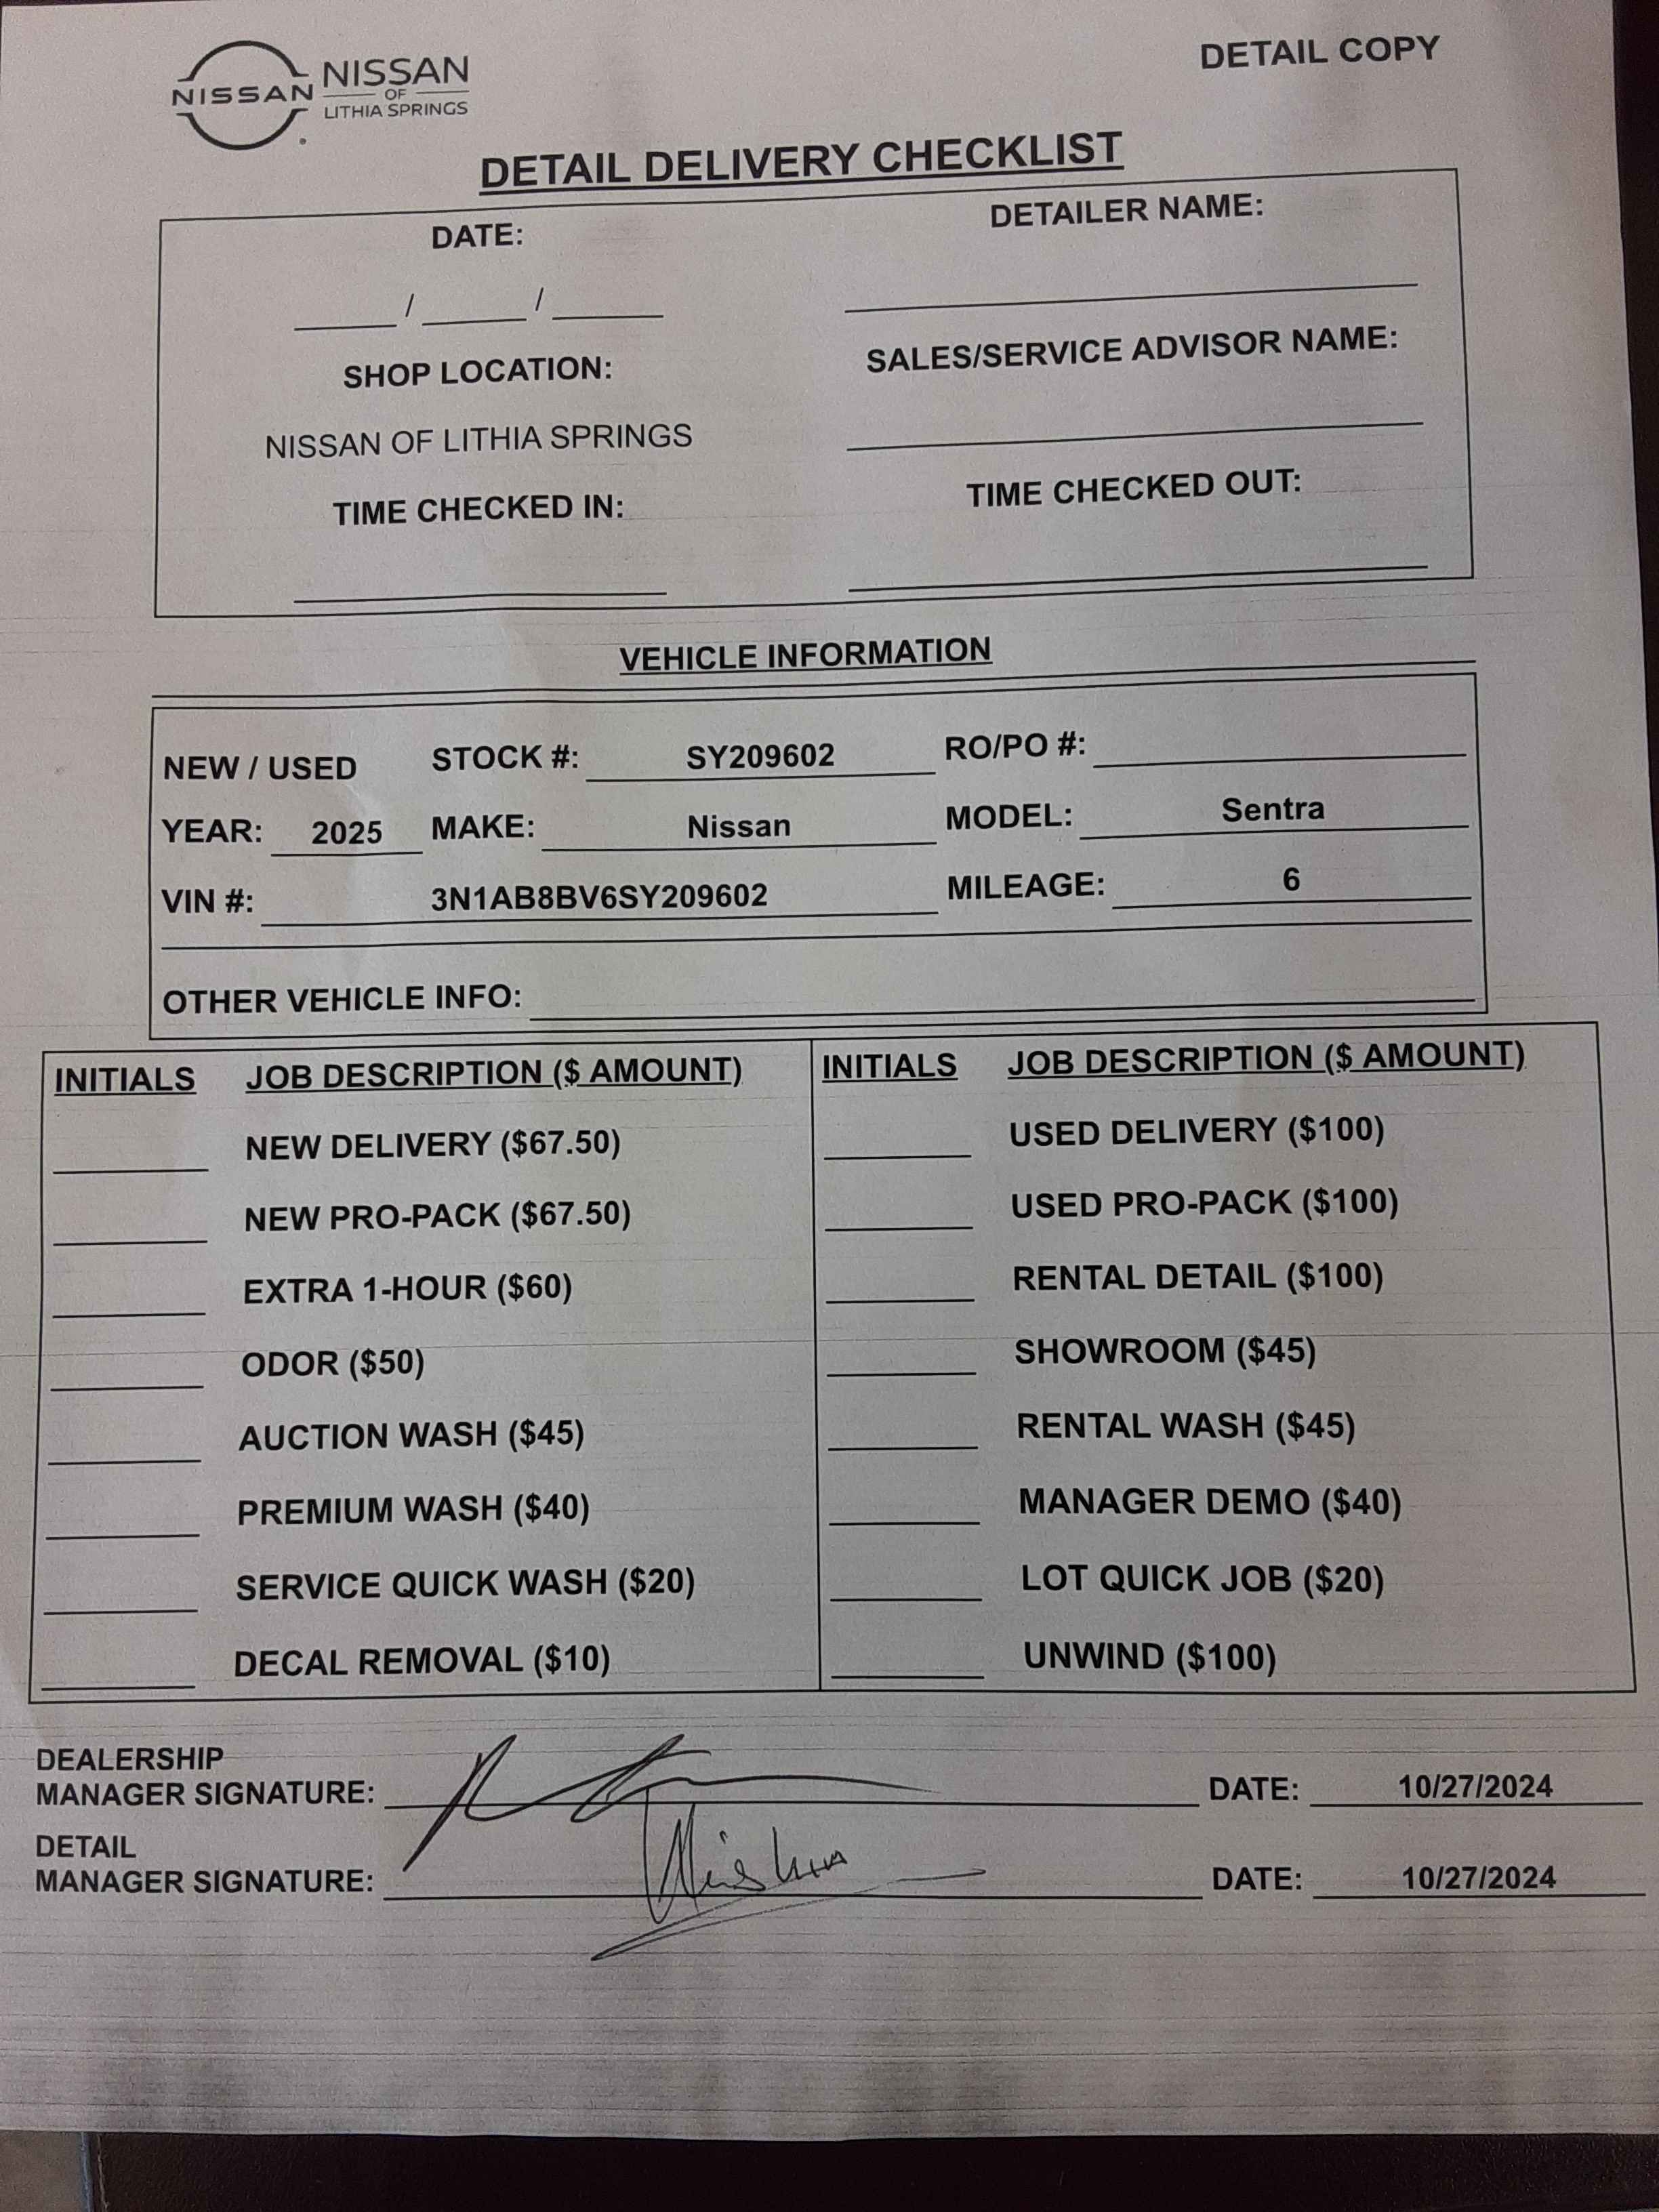 NISSAN
NISSAN
OF
LITHIA SPRINGS
DETAIL COPY
DETAIL DELIVERY CHECKLIST
DATE:
DETAILER NAME:
____ / ____ / ____
SHOP LOCATION:
SALES/SERVICE ADVISOR NAME:
NISSAN OF LITHIA SPRINGS
TIME CHECKED IN:
TIME CHECKED OUT:
VEHICLE INFORMATION
NEW / USED STOCK #: SY209602 RO/PO #:
YEAR: 2025 MAKE: Nissan MODEL: Sentra
VIN #: 3N1AB8BV6SY209602 MILEAGE: 6
OTHER VEHICLE INFO:
INITIALS JOB DESCRIPTION ($ AMOUNT) INITIALS JOB DESCRIPTION ($ AMOUNT)
NEW DELIVERY ($67.50) USED DELIVERY ($100)
NEW PRO-PACK ($67.50) USED PRO-PACK ($100)
EXTRA 1-HOUR ($60) RENTAL DETAIL ($100)
ODOR ($50) SHOWROOM ($45)
AUCTION WASH ($45) RENTAL WASH ($45)
PREMIUM WASH ($40) MANAGER DEMO ($40)
SERVICE QUICK WASH ($20) LOT QUICK JOB ($20)
DECAL REMOVAL ($10) UNWIND ($100)
DEALERSHIP
MANAGER SIGNATURE: DATE: 10/27/2024
DETAIL
MANAGER SIGNATURE: DATE: 10/27/2024